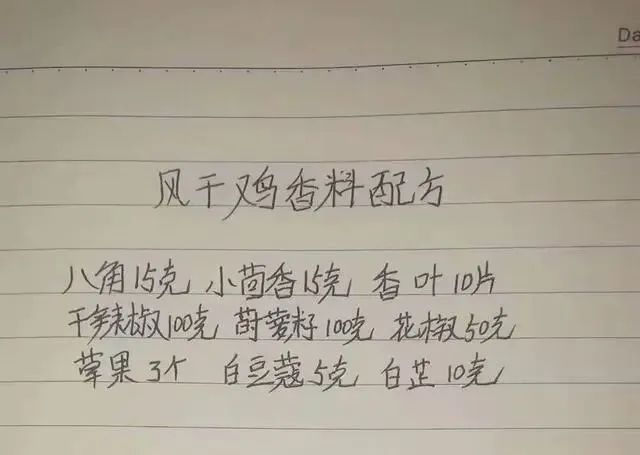 Da
风干鸡香料配方
八角15克 小茴香15克 香叶10片
干辣椒100克 莳萝籽100克 花椒50克
草果3个 白豆蔻5克 白芷10克